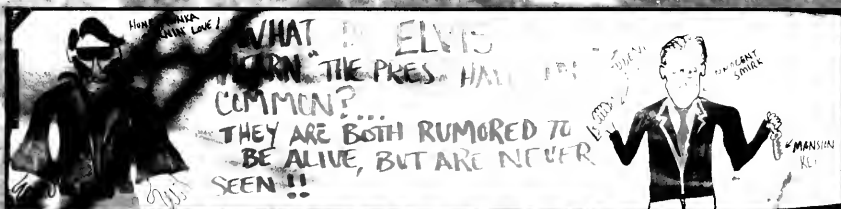 HUNKA HUNKA
LOVE!
WHAT ELVIS
"THE PRES. HAVE IN
COMMON?...
THEY ARE BOTH RUMORED TO
BE ALIVE, BUT ARE NEVER
SEEN!!
INNOCENT
SMIRK
MANSION
KEY